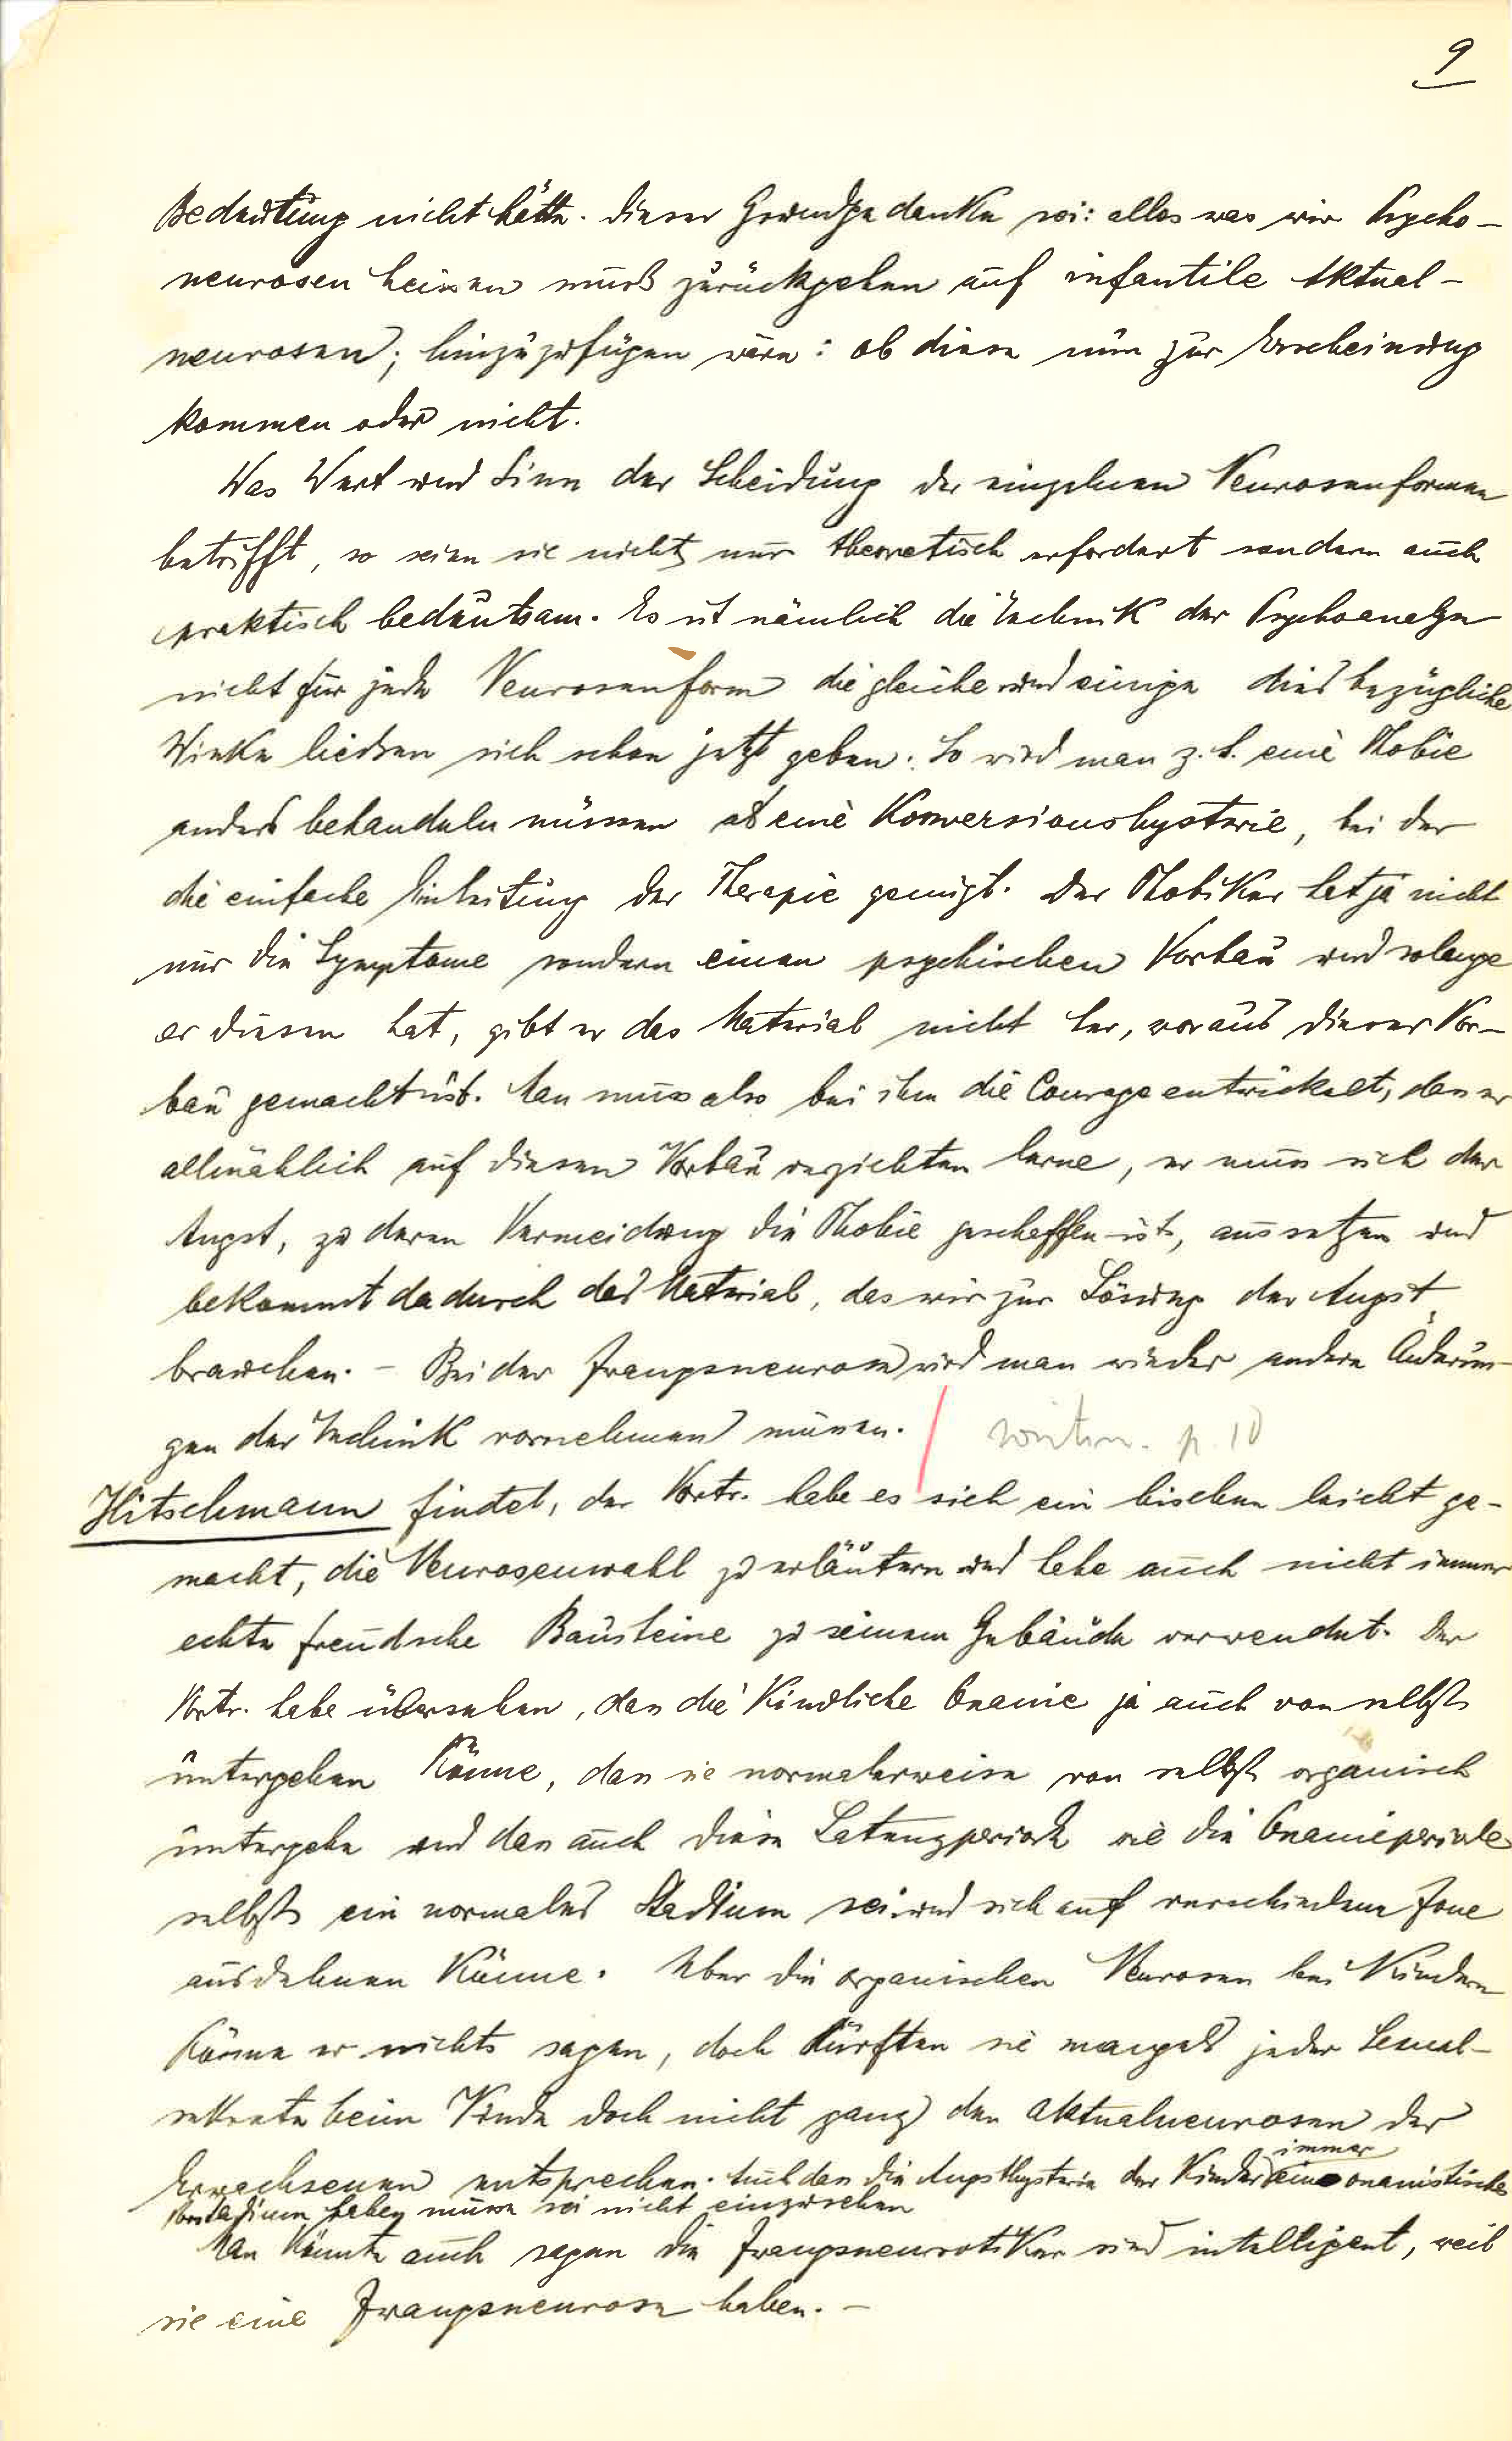 9
Bedeutung nicht hätte. Dieser Grundgedanke sei: alles was wir Psycho-
neurosen heissen muß zurückgehen auf infantile Aktual-
neurosen; hinzuzufügen wäre: ob diese nun zur Erscheinung
kommen oder nicht.
Was Wert und Sinn der Scheidung der einzelnen Neurosenformen
betrifft, so seien sie nicht nur theoretisch erfordert sondern auch
praktisch bedeutsam. Es ist nämlich die Technik der Psychoanalyse
nicht für jede Neurosenform die gleiche und einige diesbezügliche
Winke liessen sich schon jetzt geben. So wird man z.B. eine Phobie
anders behandeln müssen als eine Konversionshysterie, bei der
die einfache Einleitung der Therapie genügt. Der Phobiker hat ja nicht
nur die Symptome sondern einen psychischen Vorbau und solange
er diesen hat, gibt er das Material nicht her, woraus dieser Vor-
bau gemacht ist. Man muss also bei ihm die Courage entwickelt, dass er
allmählich auf diesen Vorbau verzichten lerne, er muss sich der
Angst, zu deren Vermeidung die Phobie geschaffen ist, aussetzen und
bekommt dadurch das Material, das wir zur Lösung der Angst
brauchen. – Bei der Zwangsneurose wird man wieder andere Änderun-
gen der Technik vornehmen müssen. p. 10
Hitschmann findet, der Vortr. habe es sich ein bischen leicht ge-
macht, die Neurosenwahl zu erläutern und habe auch nicht immer
echte freudsche Bausteine zu seinem Gebäude verwendet. Der
Vortr. habe übersehen, dass die kindliche Onanie ja auch von selbst
untergehen könne, dass sie normalerweise von selbst organisch
untergehe und dass auch diese Latenzperiode wie die Onanieperiode
selbst ein normales Stadium sei und sich auf verschiedene Zone
ausdehnen könne. Über die organischen Neurosen bei Kindern
könne er nichts sagen, doch dürften sie mangels jeder Sexual-
sekrete beim Kinde doch nicht ganz den Aktualneurosen der
immer
Erwachsenen entsprechen. Auch dass die Angsthysterie der Kinder ein onanistisches
Vorstadium haben müsse sei nicht einzusehen
Man könnte auch sagen die Zwangsneurotiker sind intelligent, weil
sie eine Zwangsneurose haben. –